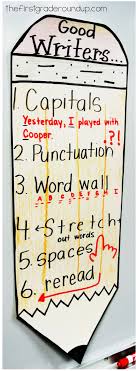 thefirstgraderoundup.com
Good
Writers...
1. Capitals
Yesterday, I played with
Cooper.
.?!
2. Punctuation
3. Word wall
A B C D E F G H I
4. Stretch
out words
5. spaces
6. reread